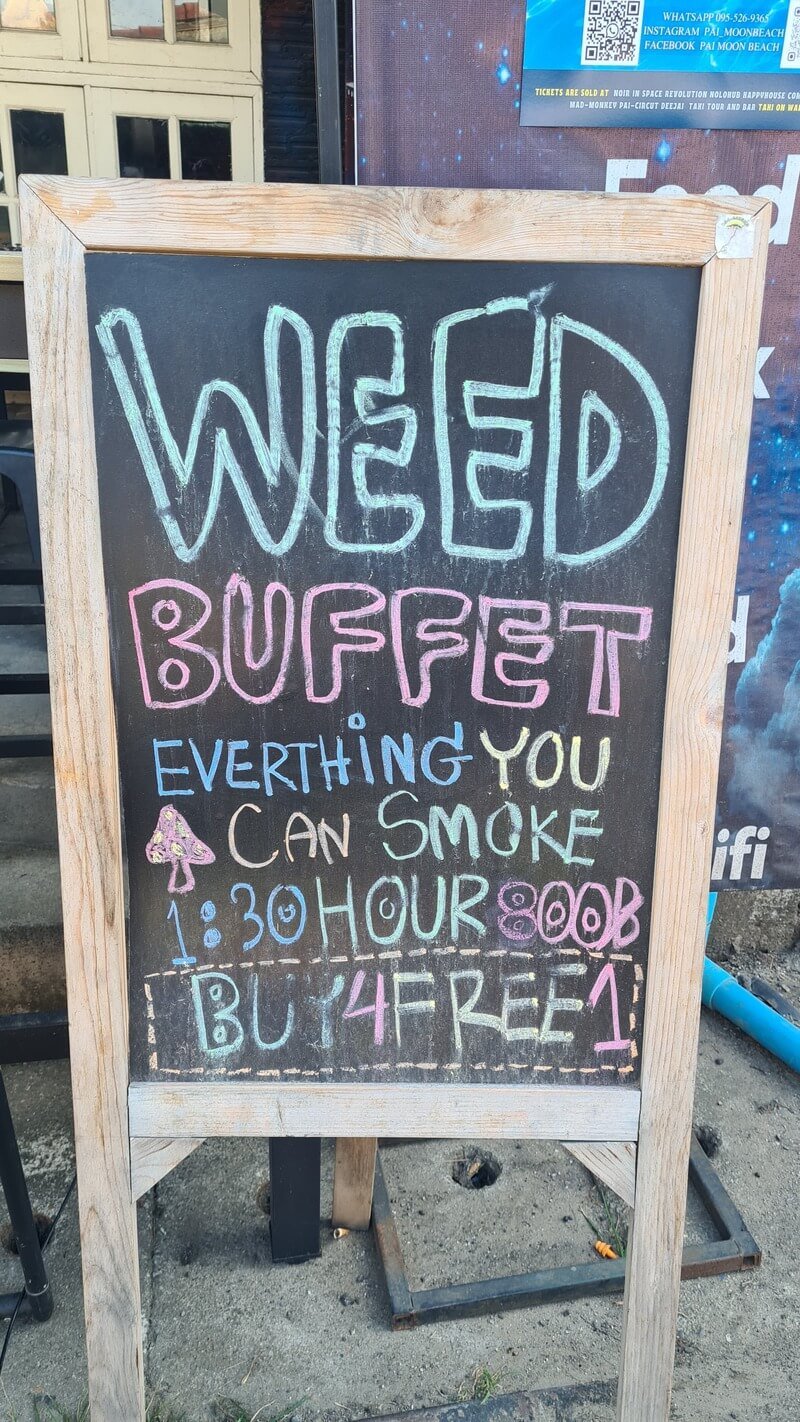 WHATSAPP 095-526-9365
INSTAGRAM PAI_MOONBEACH
FACEBOOK PAI MOON BEACH
TICKETS ARE SOLD AT NOIR IN SPACE REVOLUTION HOLOHUB HAPPYHOUSE
MAD-MONKEY PAI-CIRCUT DEEJAI TAKI TOUR AND BAR TAKI ON
Food
WEED
BUFFET
EVERTHING YOU
CAN SMOKE
1:30 HOUR 800B
BUY 4 FREE 1
ifi